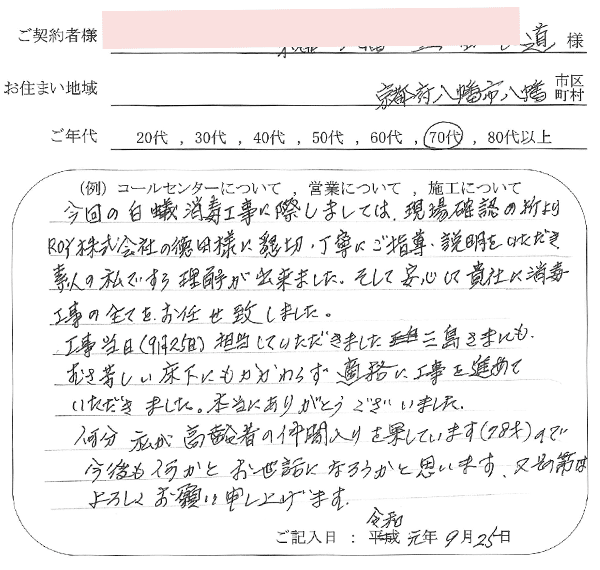 ご契約者様 道 様
お住まい地域 京都府八幡市八幡 市区町村
ご年代 20代 , 30代 , 40代 , 50代 , 60代 , 70代 , 80代以上
(例) コールセンターについて , 営業について , 施工について
今回の白蟻消毒工事に際しましては、現場確認の折より
ROY株式会社の徳田様に懇切・丁寧にご指導・説明をいただき
素人の私ですら理解が出来ました。そして安心して貴社に消毒
工事の全てをお任せ致しました。
工事当日(9月25日)担当していただきました 三島さまにも
むさ苦しい床下にもかかわらず 適格に工事を進めて
いただきました。本当にありがとうございました。
何分 私が高齢者の仲間入りを果しています(78才)ので
今後も何かとお世話になろうかと思います、又その節は
よろしくお願い申し上げます.
令和
ご記入日 : 平成 元年 9月 25日